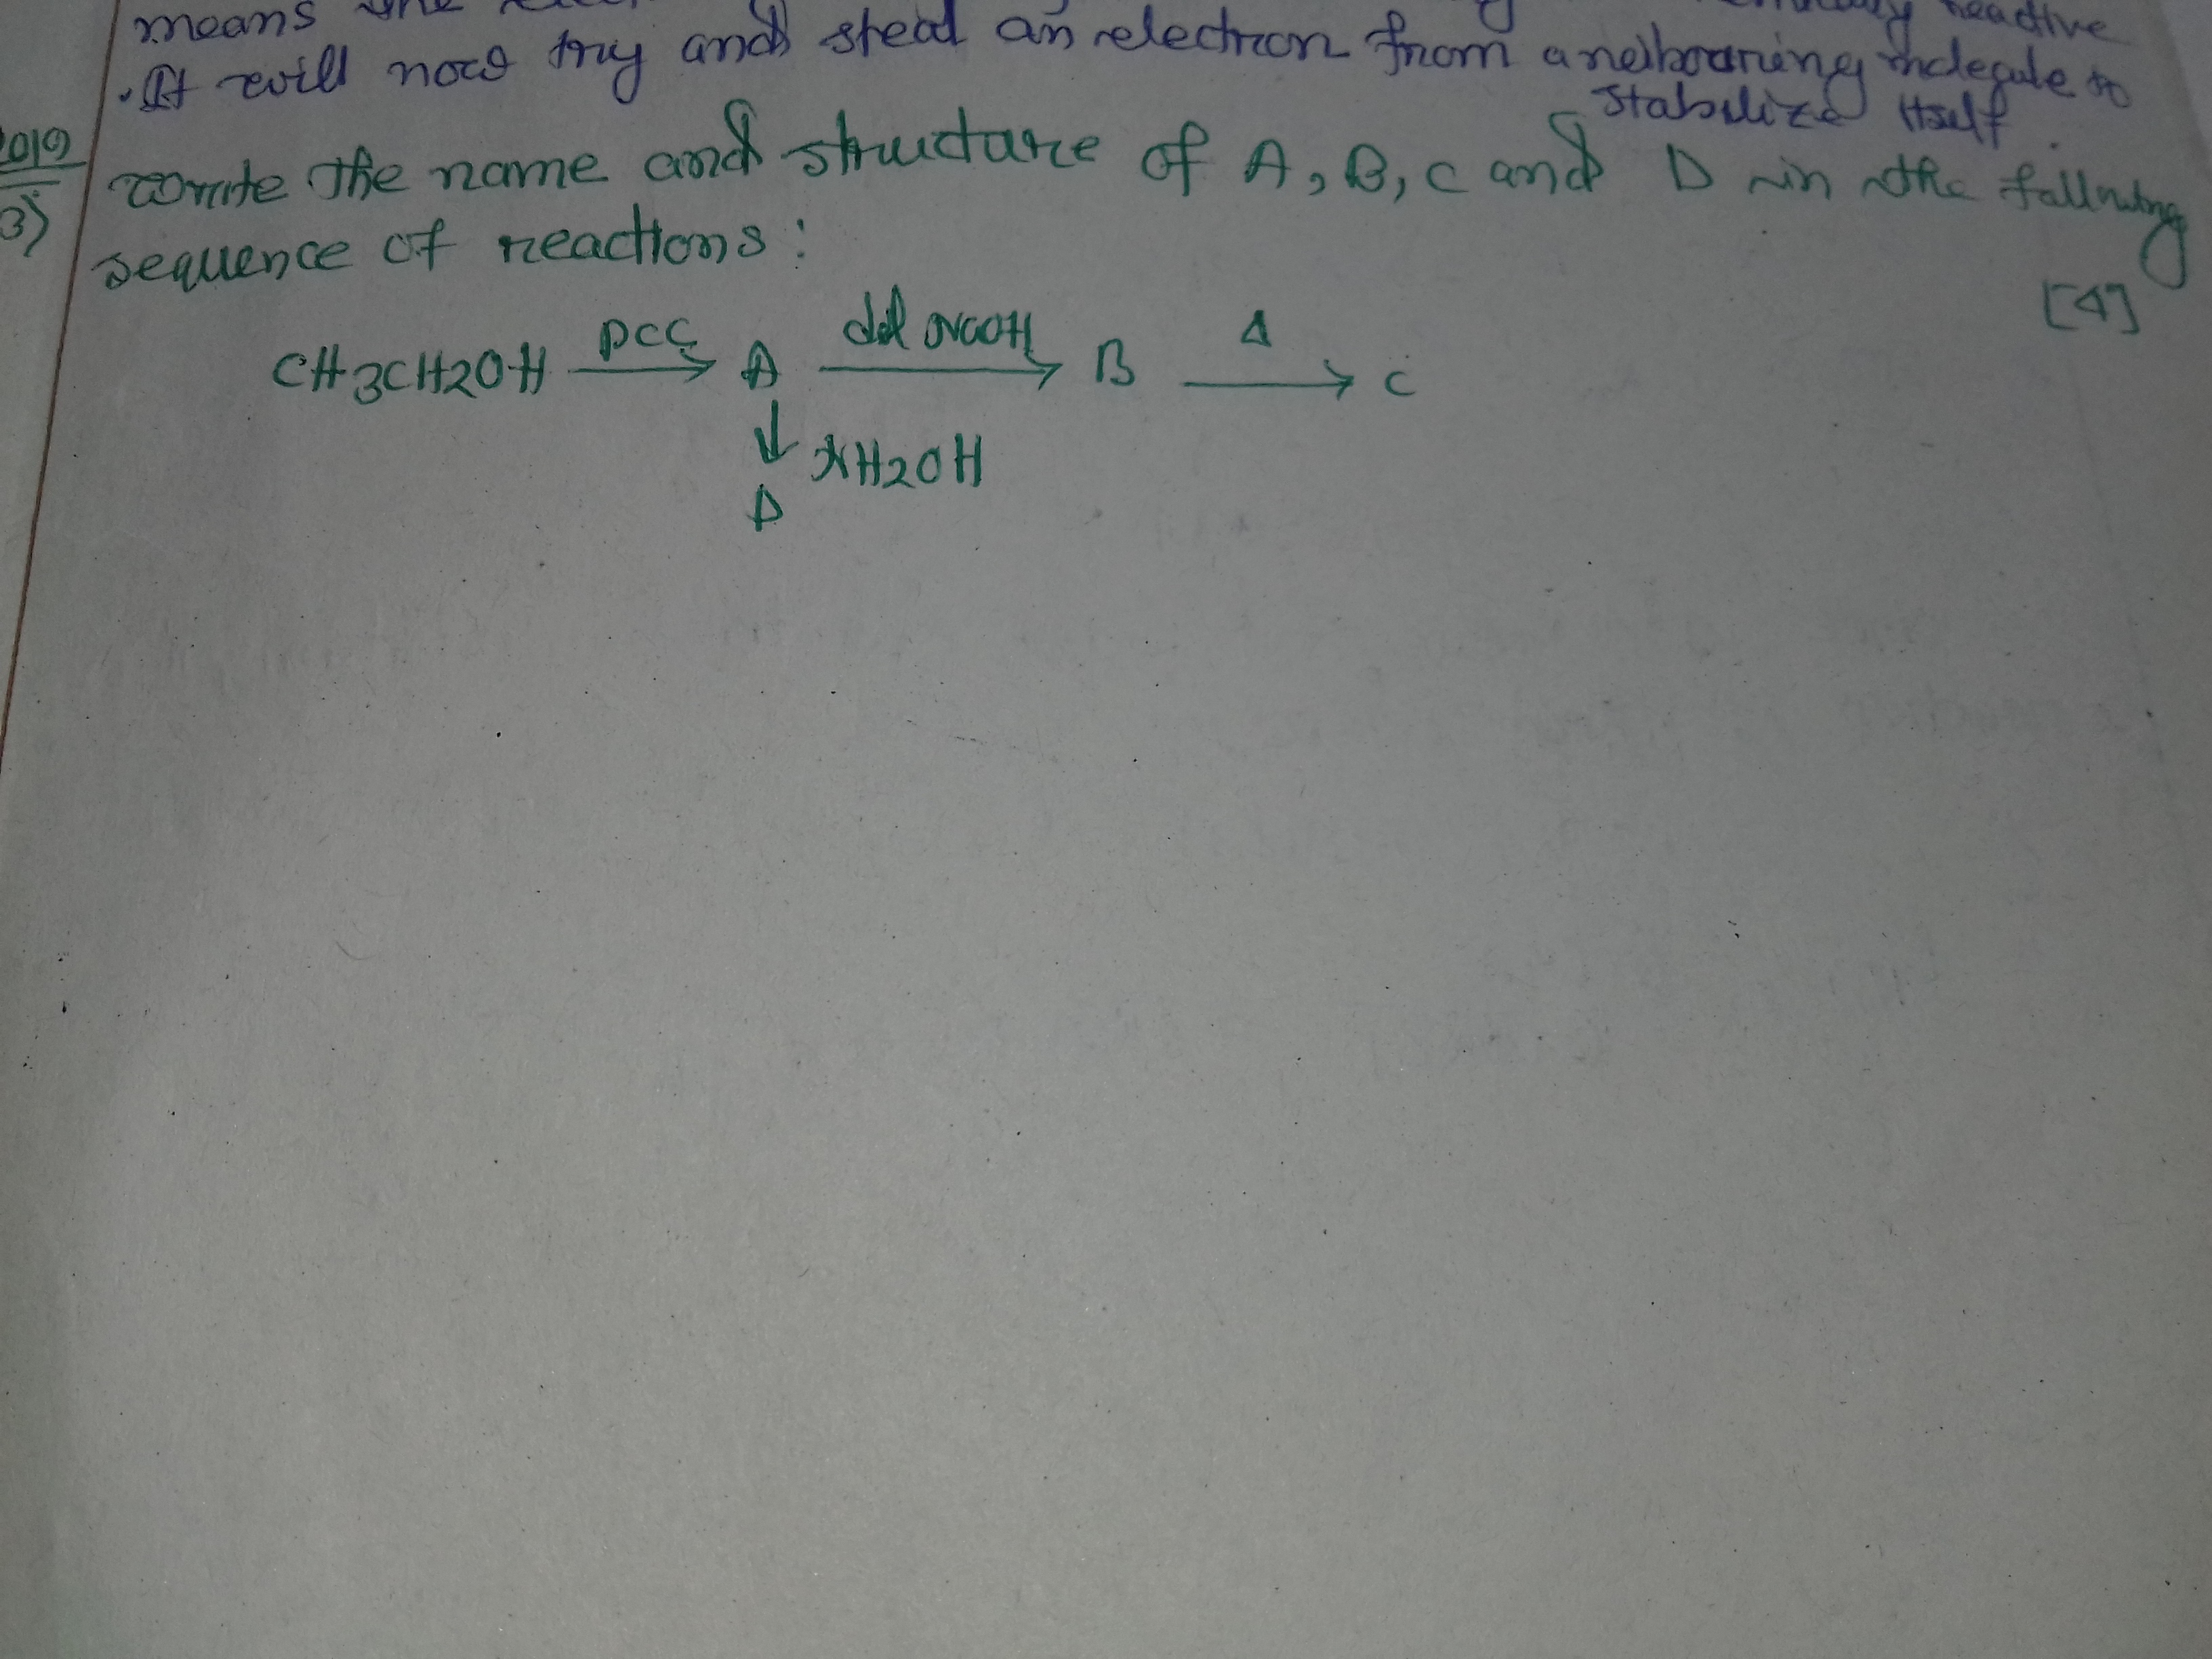 means the
.It will now try and steal an electron from a neiboraring molecule to
stabilize itself
2019
3)
write the name and structure of A, B, C and D in the following
sequence of reactions:
[4]
CH3CH2OH PCC A dil NaOH B Δ C
↓ NH2OH
D